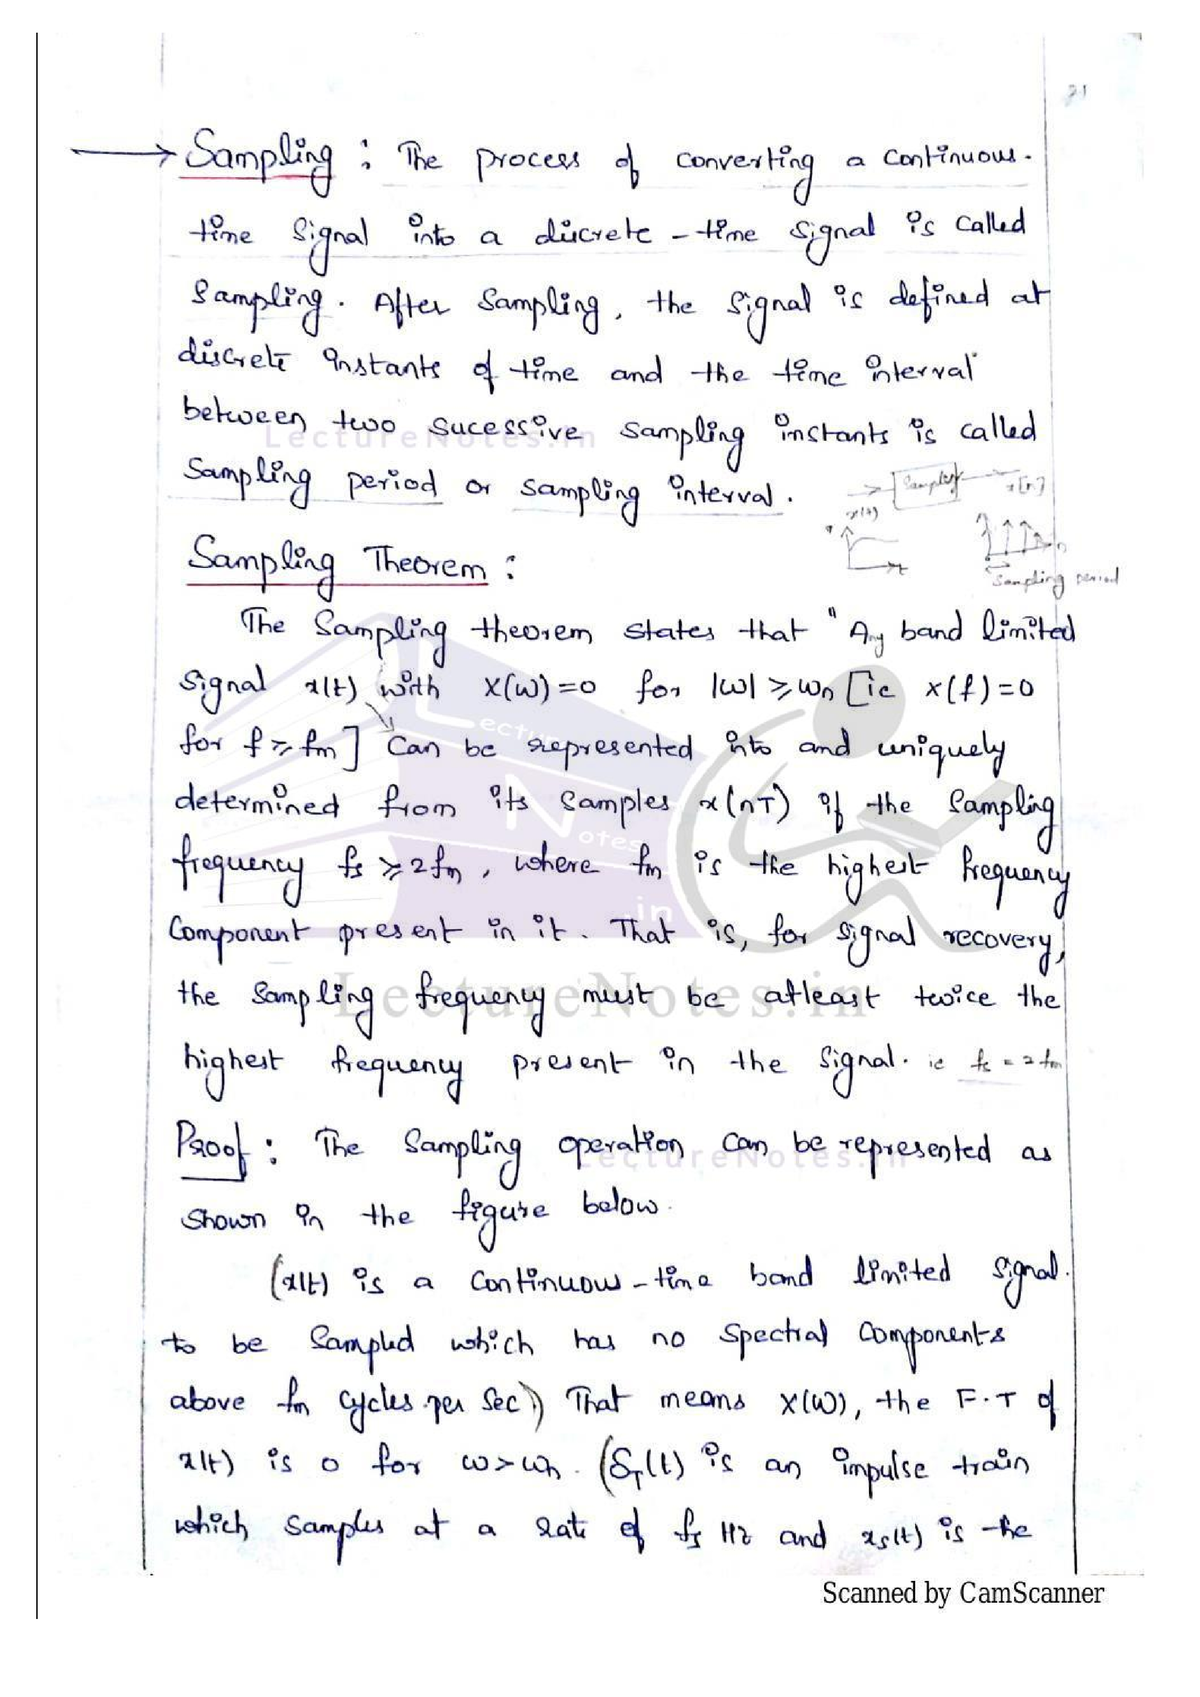 21
Sampling : The process of converting a continuous-
time signal into a discrete - time signal is called
Sampling. After sampling, the signal is defined at
discrete instants of time and the time interval
between two sucessive sampling instants is called
LectureNotes.in
Sampling period or sampling interval.
Sampling x[n]
x(t)
t n
Sampling period
Sampling Theorem :
The Sampling theorem states that " Any band limited
signal x(t) with X(ω)=0 for |ω| ≥ ωm [ie x(f)=0
for f ≥ fm] can be represented into and uniquely
determined from its samples x(nT) if the sampling
frequency fs ≥ 2fm, where fm is the highest frequency
Component present in it. That is, for signal recovery,
Lecture Notes .in
the sampling frequency must be atleast twice the
LectureNotes.in
highest frequency present in the signal. ie fs = 2fm
Proof : The Sampling operation can be represented as
LectureNotes.in
shown in the figure below.
(x(t) is a continuous - time band limited signal.
to be sampled which has no spectral components
above fm cycles per sec) That means X(ω), the F.T of
x(t) is 0 for ω > ωm. (δT(t) is an impulse train
which samples at a rate of fs Hz and xs(t) is the
Scanned by CamScanner